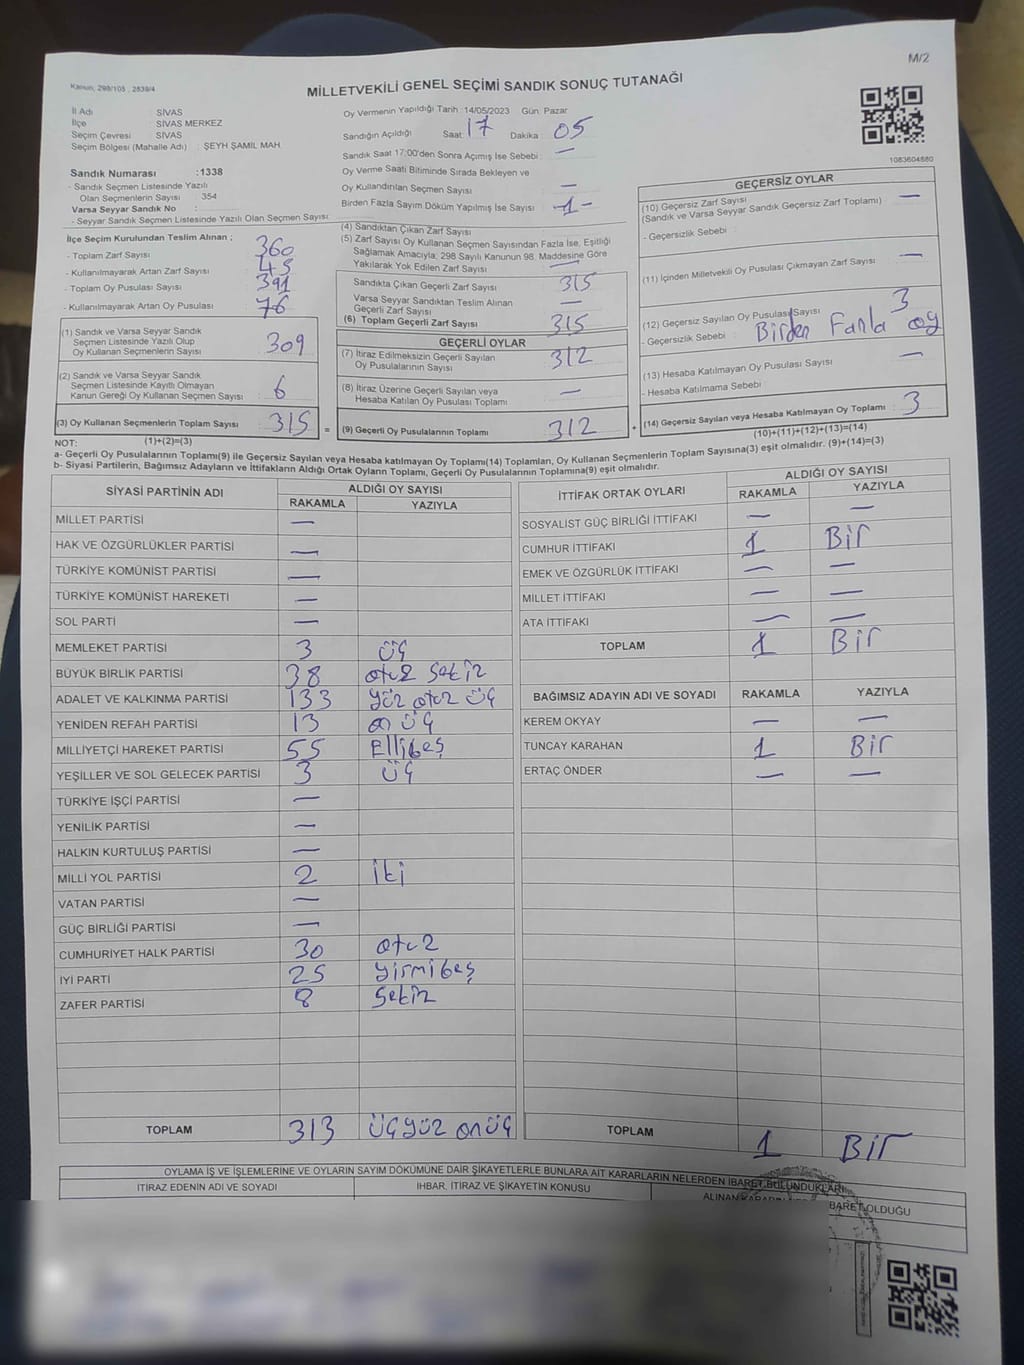 M/2
Kanun; 298/105 , 2839/4
MİLLETVEKİLİ GENEL SEÇİMİ SANDIK SONUÇ TUTANAĞI
İl Adı : SİVAS
İlçe : SİVAS MERKEZ
Seçim Çevresi : SİVAS
Seçim Bölgesi (Mahalle Adı) : ŞEYH ŞAMİL MAH.
Sandık Numarası :1338
- Sandık Seçmen Listesinde Yazılı
Olan Seçmenlerin Sayısı : 354
Varsa Seyyar Sandık No :
- Seyyar Sandık Seçmen Listesinde Yazılı Olan Seçmen Sayısı:
Oy Vermenin Yapıldığı Tarih :14/05/2023 Gün: Pazar
Sandığın Açıldığı Saat: 17 Dakika : 05
Sandık Saat 17:00'den Sonra Açılmış İse Sebebi : —
Oy Verme Saati Bitiminde Sırada Bekleyen ve
Oy Kullandırılan Seçmen Sayısı —
Birden Fazla Sayım Döküm Yapılmış İse Sayısı -1-
1083604880
İlçe Seçim Kurulundan Teslim Alınan ;
- Toplam Zarf Sayısı : 360
- Kullanılmayarak Artan Zarf Sayısı : 45
- Toplam Oy Pusulası Sayısı : 391
- Kullanılmayarak Artan Oy Pusulası : 76
(1) Sandık ve Varsa Seyyar Sandık
Seçmen Listesinde Yazılı Olup
Oy Kullanan Seçmenlerin Sayısı : 309
(2) Sandık ve Varsa Seyyar Sandık
Seçmen Listesinde Kayıtlı Olmayan
Kanun Gereği Oy Kullanan Seçmen Sayısı : 6
(3) Oy Kullanan Seçmenlerin Toplam Sayısı : 315
(1)+(2)=(3)
(4) Sandıktan Çıkan Zarf Sayısı :
(5) Zarf Sayısı Oy Kullanan Seçmen Sayısından Fazla İse, Eşitliği
Sağlamak Amacıyla; 298 Sayılı Kanunun 98. Maddesine Göre
Yakılarak Yok Edilen Zarf Sayısı : —
Sandıkta Çıkan Geçerli Zarf Sayısı : 315
Varsa Seyyar Sandıktan Teslim Alınan
Geçerli Zarf Sayısı : —
(6) Toplam Geçerli Zarf Sayısı : 315
GEÇERLİ OYLAR
(7) İtiraz Edilmeksizin Geçerli Sayılan
Oy Pusulalarının Sayısı : 312
(8) İtiraz Üzerine Geçerli Sayılan veya
Hesaba Katılan Oy Pusulası Toplamı : —
= (9) Geçerli Oy Pusulalarının Toplamı : 312
GEÇERSİZ OYLAR
(10) Geçersiz Zarf Sayısı : —
(Sandık ve Varsa Seyyar Sandık Geçersiz Zarf Toplamı)
- Geçersizlik Sebebi :
(11) İçinden Milletvekili Oy Pusulası Çıkmayan Zarf Sayısı : —
(12) Geçersiz Sayılan Oy Pusulası Sayısı : 3
- Geçersizlik Sebebi : Birden Fazla oy
(13) Hesaba Katılmayan Oy Pusulası Sayısı : —
- Hesaba Katılmama Sebebi :
+ (14) Geçersiz Sayılan veya Hesaba Katılmayan Oy Toplamı : 3
(10)+(11)+(12)+(13)=(14)
NOT:
a- Geçerli Oy Pusulalarının Toplamı(9) ile Geçersiz Sayılan veya Hesaba katılmayan Oy Toplamı(14) Toplamları, Oy Kullanan Seçmenlerin Toplam Sayısına(3) eşit olmalıdır. (9)+(14)=(3)
b- Siyasi Partilerin, Bağımsız Adayların ve İttifakların Aldığı Ortak Oyların Toplamı, Geçerli Oy Pusulalarının Toplamına(9) eşit olmalıdır.
SİYASİ PARTİNİN ADI ALDIĞI OY SAYISI
RAKAMLA YAZIYLA
MİLLET PARTİSİ —
HAK VE ÖZGÜRLÜKLER PARTİSİ —
TÜRKİYE KOMÜNİST PARTİSİ —
TÜRKİYE KOMÜNİST HAREKETİ —
SOL PARTİ —
MEMLEKET PARTİSİ 3 üç
BÜYÜK BİRLİK PARTİSİ 38 otuz sekiz
ADALET VE KALKINMA PARTİSİ 133 yüz otuz üç
YENİDEN REFAH PARTİSİ 13 on üç
MİLLİYETÇİ HAREKET PARTİSİ 55 Ellibeş
YEŞİLLER VE SOL GELECEK PARTİSİ 3 üç
TÜRKİYE İŞÇİ PARTİSİ —
YENİLİK PARTİSİ —
HALKIN KURTULUŞ PARTİSİ —
MİLLİ YOL PARTİSİ 2 iki
VATAN PARTİSİ —
GÜÇ BİRLİĞİ PARTİSİ —
CUMHURİYET HALK PARTİSİ 30 otuz
İYİ PARTİ 25 yirmibeş
ZAFER PARTİSİ 8 sekiz
TOPLAM 313 üçyüz onüç
İTTİFAK ORTAK OYLARI ALDIĞI OY SAYISI
RAKAMLA YAZIYLA
SOSYALİST GÜÇ BİRLİĞİ İTTİFAKI — —
CUMHUR İTTİFAKI 1 Bir
EMEK VE ÖZGÜRLÜK İTTİFAKI — —
MİLLET İTTİFAKI — —
ATA İTTİFAKI — —
TOPLAM 1 Bir
BAĞIMSIZ ADAYIN ADI VE SOYADI RAKAMLA YAZIYLA
KEREM OKYAY — —
TUNCAY KARAHAN 1 Bir
ERTAÇ ÖNDER — —
TOPLAM 1 Bir
OYLAMA İŞ VE İŞLEMLERİNE VE OYLARIN SAYIM DÖKÜMÜNE DAİR ŞİKAYETLERLE BUNLARA AİT KARARLARIN NELERDEN İBARET BULUNDUKLARI
İTİRAZ EDENİN ADI VE SOYADI
İHBAR, İTİRAZ VE ŞİKAYETİN KONUSU
ALINAN KARARIN İBARET OLDUĞU